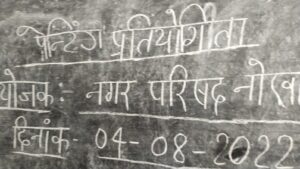 पेन्टिंग प्रतियोगीता
योजक:- नगर परिषद नोखा
दिनांक- 04-08-2022